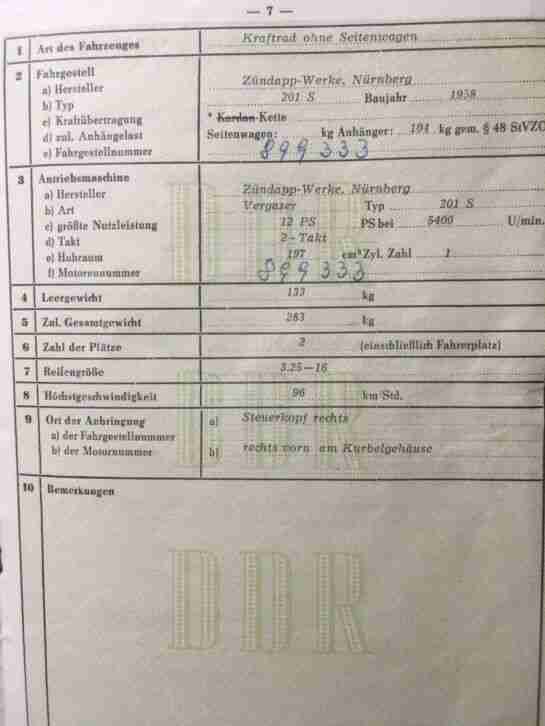 — 7 —
1 Art des Fahrzeuges Kraftrad ohne Seitenwagen
2 Fahrgestell
a) Hersteller Zündapp-Werke, Nürnberg
b) Typ 201 S Baujahr 1958
c) Kraftübertragung * Kardan-Kette
d) zul. Anhängelast Seitenwagen: kg Anhänger: 194 kg gem. § 48 StVZO
e) Fahrgestellnummer 899 333
3 Antriebsmaschine
a) Hersteller Zündapp-Werke, Nürnberg
b) Art Vergaser Typ 201 S
c) größte Nutzleistung 12 PS PS bei 5400 U/min.
d) Takt 2-Takt
e) Hubraum 197 cm³ Zyl. Zahl 1
f) Motorennummer 899 333
4 Leergewicht 133 kg
5 Zul. Gesamtgewicht 283 kg
6 Zahl der Plätze 2 (einschließlich Fahrerplatz)
7 Reifengröße 3.25—16
8 Höchstgeschwindigkeit 96 km/Std.
9 Ort der Anbringung a) Steuerkopf rechts
a) der Fahrgestellnummer
b) der Motornummer b) rechts vorn am Kurbelgehäuse
10 Bemerkungen
DDR
DDR
DDR